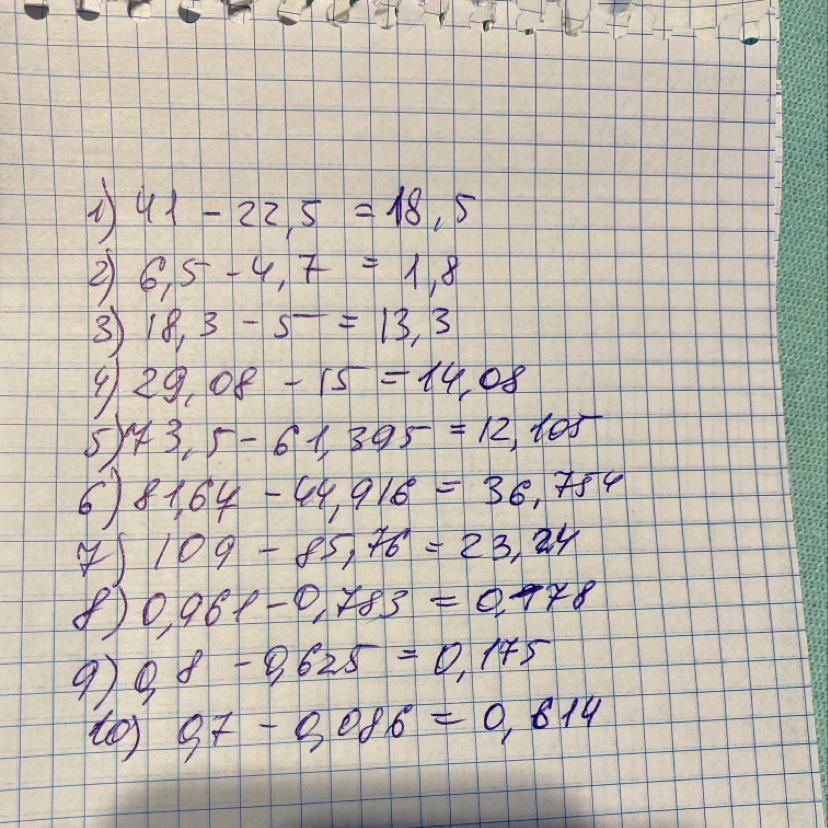 1) 41 - 22,5 = 18,5
2) 6,5 - 4,7 = 1,8
3) 18,3 - 5 = 13,3
4) 29,08 - 15 = 14,08
5) 73,5 - 61,395 = 12,105
6) 81,64 - 44,916 = 36,754
7) 109 - 85,76 = 23,24
8) 0,961 - 0,783 = 0,178
9) 0,8 - 0,625 = 0,175
10) 0,7 - 0,086 = 0,614